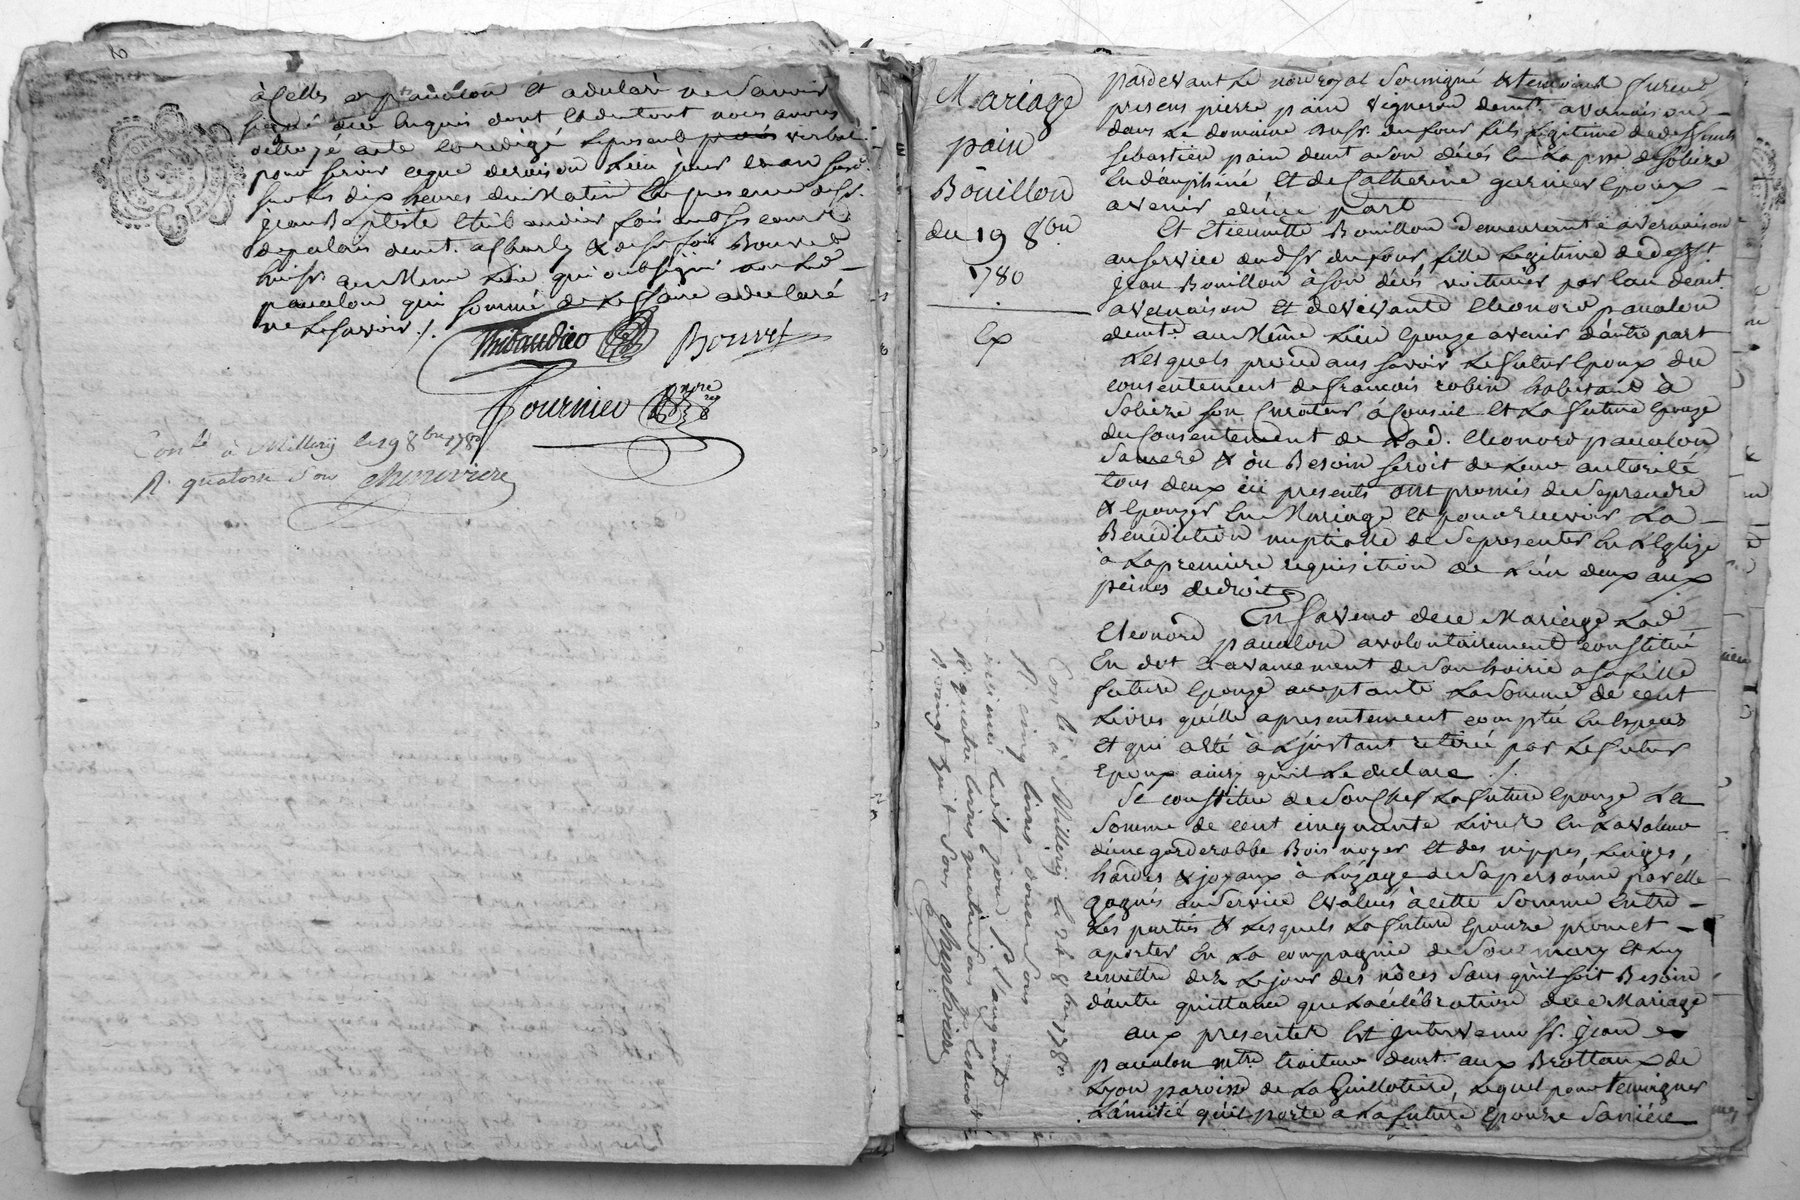 à celles pauealon et a declaré ne Savoir
signé de ce Enquis dont et dutout nous avons
octroyé acte et redigé Lepresent procés verbal
pour servir ceque deraison Lieu jour et an susd.
sur les dix heures du Matin En presence de Sr
jean Baptiste thibaudier
depalais demt. a Charly & de Sr Bouvet
huissr. au Meme Lieu qui ont signé non Lad
pauealon qui sommé de Le faire a declaré
ne Le savoir ./.
Thibaudier Bouvet
Fournier nore reg
Conlé à Millery le 19 8bre 1780
R. quatorze sous Chenevriere
Mariage
pain
Boüillon
du 19 8bre
1780
Ex
pardevant Le nore royal Soussigné & temoins furent
presens pierre pain vigneron demt. a vernaison
dans Le domaine du Sr. dufour fils Legitime de deffunts
Sebastien pain demt a son décés En La psse de Soleize
En dauphiné Et de Catherine garnier Epoux
avenir d'une part
Et Etiennette Boüillon demeurante a vernaison
au service dud Sr dufour fille Legitime de defft
jean Boüillon à son décés voiturier par Eau demt.
a vernaison et de vivante Eleonore pauealon
demte. au Même Lieu Epouze avenir d'autre part
Lesquels procedans savoir Le futur Epoux du
consentement de francois robin habitant à
Soleize son Curateur à Conseil Et La future Epouze
du Consentement de Lad. Eleonore pauealon
Sa mere & où Besoin seroit de Leur autorité
tous deux ici presents ont promis de Seprendre
& Epouzer En Mariage et pour recevoir La
Benediction nuptiale de Sepresenter En L'Eglize
à La premiere requisition de L'un deux aux
peines de droit
En faveur de ce Mariage Lad
Eleonore pauealon a volontairement constitué
En dot et avancement de Son hoirie a Sa fille
future Epouze acceptante La Somme de cent
Livres quelle a presentement compté En Especes
et qui a Eté à L'jnstant retirée par Le futur
Epoux ainsy quil Le declare ./.
Se constitue de Son Chef La future Epouze La
Somme de cent cinquante Livres En La valeur
d'une garderobbe Bois noyer Et des nippes, Linges,
hardes & joyaux à L'uzage de Sa personne par elle
gagnés au Service Evalués à cette Somme Entre
Les parties & Lesquels La future Epouze promet
aporter En La compagnie de Son mary Et Luy
remettre dez Le jour des nôces Sans qu'il soit Besoin
d'autre quittance que La célébration de ce Mariage
aux presentes Est jntervenu Sr. jean
pauealon mtre. traiteur demt. aux Brottaux de
Lyon paroisse de La Guillotiere, Lequel pour temoigner
L'amitié qu'il porte a La future Epouze Sa niéce
Conlé a Millery le 26 8bre 1780
R. cinq livres douze sous
insinué ledit jour
R. quatre livres quatre sous
R. vingt huit sous Chenevriere